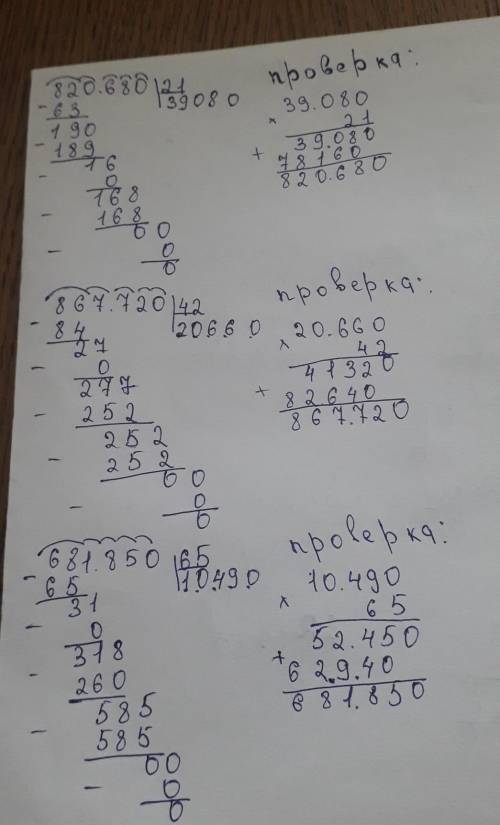 820.680 21
- 63 39080
190
- 189
16
- 0
168
- 168
00
- 0
0
проверка:
39.080
× 21
39.080
+ 78160
820.680
867.720 42
- 84 20660
27
- 0
277
- 252
252
- 252
00
- 0
0
проверка:
20.660
× 42
41320
+ 82640
867.720
681.850 65
- 65 10.490
31
- 0
318
- 260
585
- 585
00
- 0
0
проверка:
10.490
× 65
52.450
+ 62.940
681.850